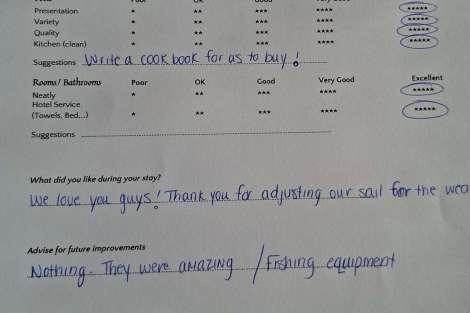 Presentation * ** *** **** *****
Variety * ** *** **** *****
Quality * ** *** **** *****
Kitchen (clean) * ** *** **** *****
Suggestions Write a cook book for us to buy!
Rooms/ Bathrooms Poor OK Good Very Good Excellent
Neatly * ** *** **** *****
Hotel Service
(Towels, Bed...) * ** *** **** *****
Suggestions
What did you like during your stay?
We love you guys! Thank you for adjusting our sail for the wea
Advise for future improvements
Nothing. They were amazing / Fishing equipment